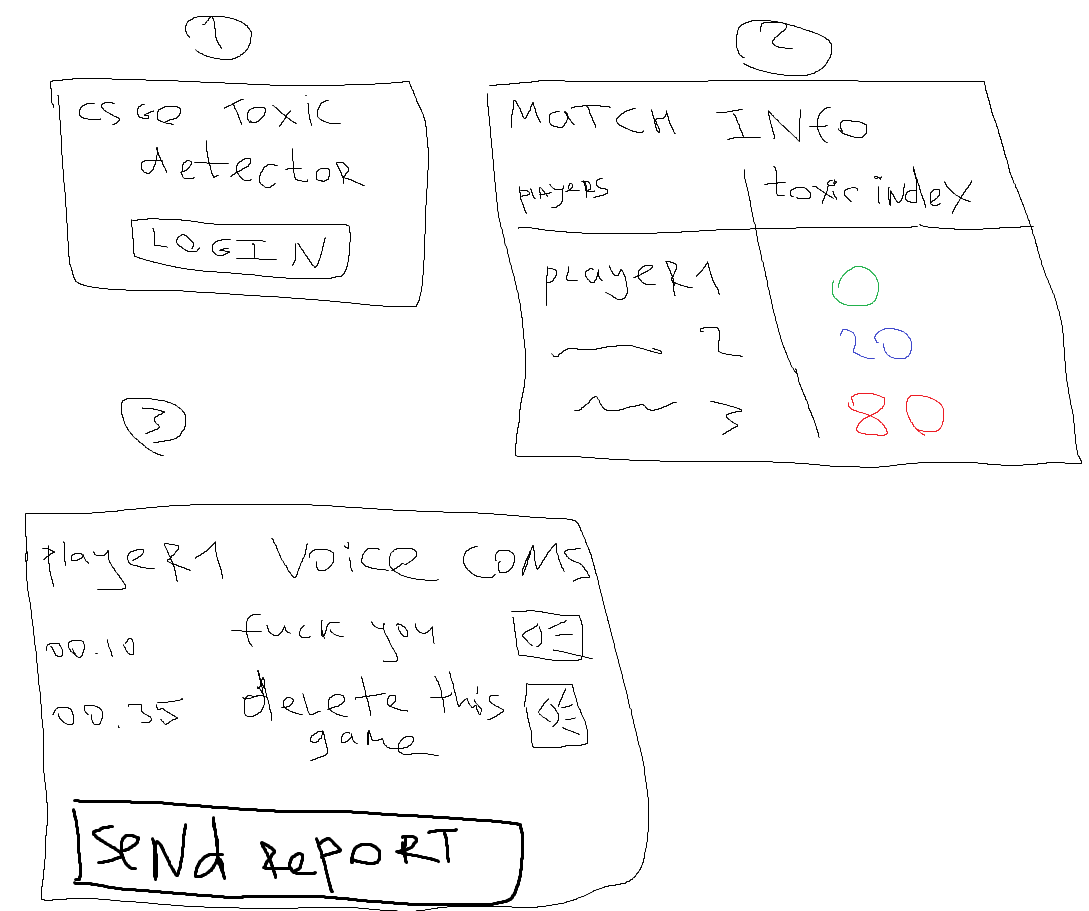 1
CSGO TOXIC
detector
LOGIN
2
MaTCH INfo
players
toxic index
player1
0
2
20
3
80
3
player1 Voice coms
00.10
fuck you
00.35
delete this
game
send report